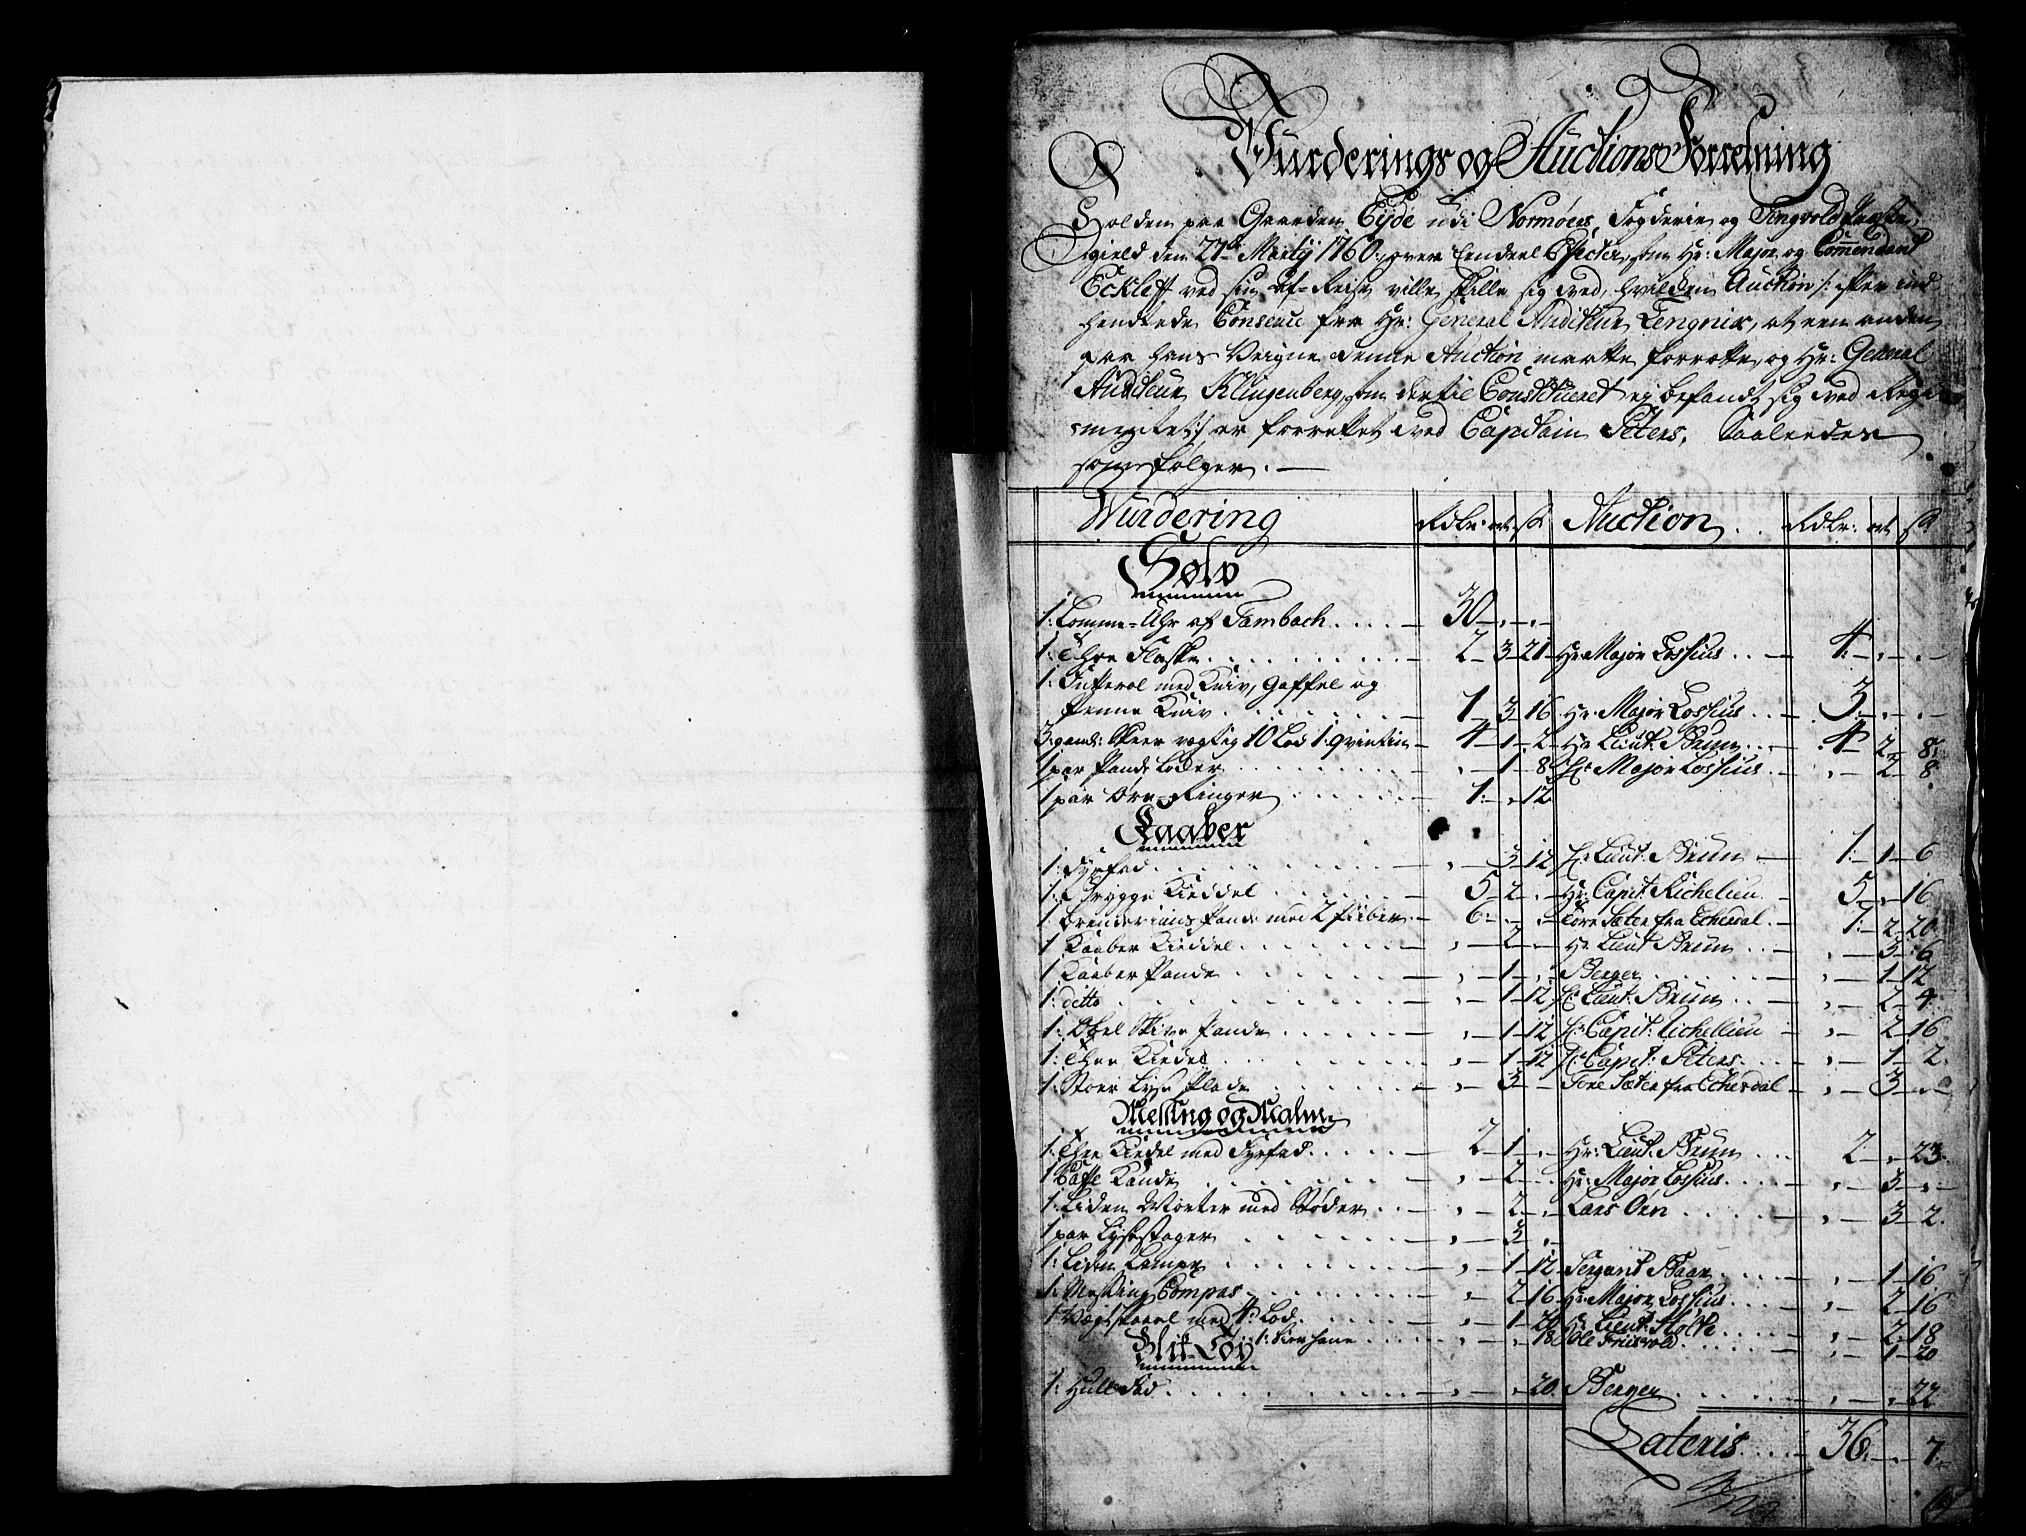 Wurderings og Auctions Forretning
Holden paa Gaarden Eyde udi Normøers Fogderie og Tingvold Præste-
gield den 27de Martij 1760 over Eendeel Effecter, som Hr: Major og Commendant
Eckleff ved sin af-Reise ville skille sig ved, hvilken Auction /: efter ind
hentede Consence fra Hr: General Auditeur Lengnix, at een anden
paa hans Veigne denne Auction maatte forrette, og Hr: General
Auditeur Klingenberg, som dertil Constitueret ej befandt sig ved Regi-
mentet :/ er forrettet ved Capitain Peters, Saaledes
som følger. —
Wurdering Rdlr: ort s Auction Rdlr: ort s
Sølv
1: Lomme-Uhr af Tambach 30 — „ — „
1: Thee Flaske 2 — 3 — 21 Hr Major Lossius 4 — „ — „
1: Futteral med Kniv, Gaffel og
Penne Kniv 1 — 3 — 16 Hr: Major Lossius 3 — „ — „
3: Skeer vægtig 10 Lod 1: qvintin 4 — 1 — 2 Hr Lieut: Brun 4 — 2 — 8
1 par „ — 1 — 8 Hr Major Lossius „ — 2 — 8
1 par Øre-Ringer 1: — „ — 12
Kaaber
1: Fyrfad „ — 3 — 12 Hr Lieut: Brun 1: — 1 — 6
1: Brygge Kieddel 5 — 2 — „ Hr: Capit: Richelieu 5 — „ — 16
1 Brendeviins Pande med 2 Piiber 6 — „ — „ Tore Sæter fra Ethesdal 7: — 2 — 20
1 Kaaber Kieddel „ — 2 — „ Hr Lieut Brun „ — 3 — 6
1 Kaaber Pande „ — 1 — „ Berger „ — 1 — 12
1: ditto „ — 1 — 12 Hr Lieut: Brun „ — 2 — 4
1: Æbel Skive Pande „ — 1 — 12 Hr Capit: Richellieu „ — 2 — 16
1: Thee Kiedel „ — 1 — 12 Hr Capit: Peters „ — 1 — 2
1: Stoer Lyse Plade „ — 3 — „ Tore Sæter fra Ethesdal „ — 3 — „
Messing og Malm
1: Thee Kiedel med Fyrfad 2 — 1 — „ Hr: Lieut: Brun 2 — „ — 23
1 Caffe Kande „ — 2 — „ Hr: Major Lossius „ — 3 — „
1: Liden Morter med Støder „ — 2 — „ Lars Øen „ — 3 — 2
1 par Lysestager „ — 3 — „
1: Liden Lampe „ — 1 — 12 Sergiant Baar „ — 1 — 16
1: Messing Compas „ — 2 — 16 Hr: Major Lossius „ — 2 — 16
1 Vægtskaal med 4: Lod „ — 1 — 20 Hr Lieut: Holte „ — 2 — 18
1: Vievhane „ — „ — 18 Ole Friisvold „ — 1 — 20
Blik-Tøy
1: Hull Fad „ — „ — 20 Berger „ — „ — 22
Lateris 36: — „ — 7